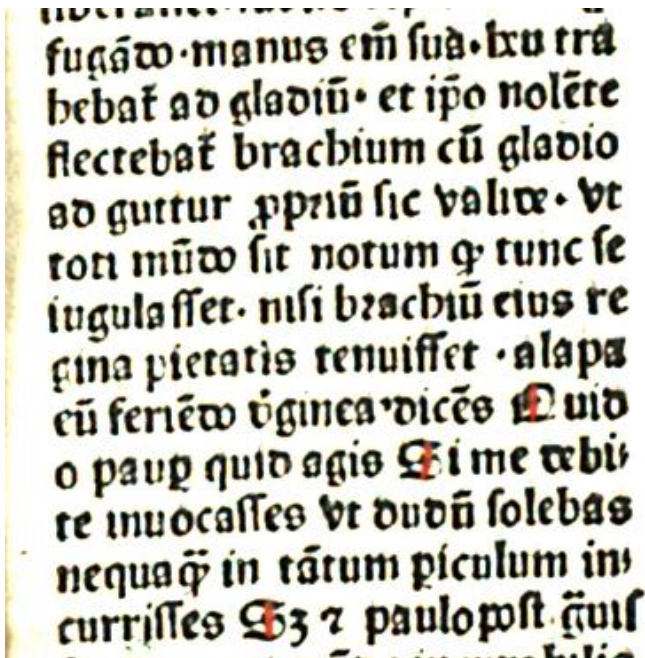 fugādo·manus em̄ sua·lxu tra
hebat̄ ad gladiū· et ip̄o nolēte
flectebat̄ brachium cū gladio
ad guttur ꝓpriū sic valide· vt
toti mūdo sit notum ꝙ tunc se
iugulasset· nisi brachiū eius re
gina pietatis tenuisset ·alapa
eū feriēdo v̄ginea·dicēs Quid
o paup̲ quid agis Si me debi⸗
te inuocasses vt dudū solebas
nequaq̄ in tātum ꝑiculum in⸗
currisses Sꝫ ⁊ paulopost ḡuis